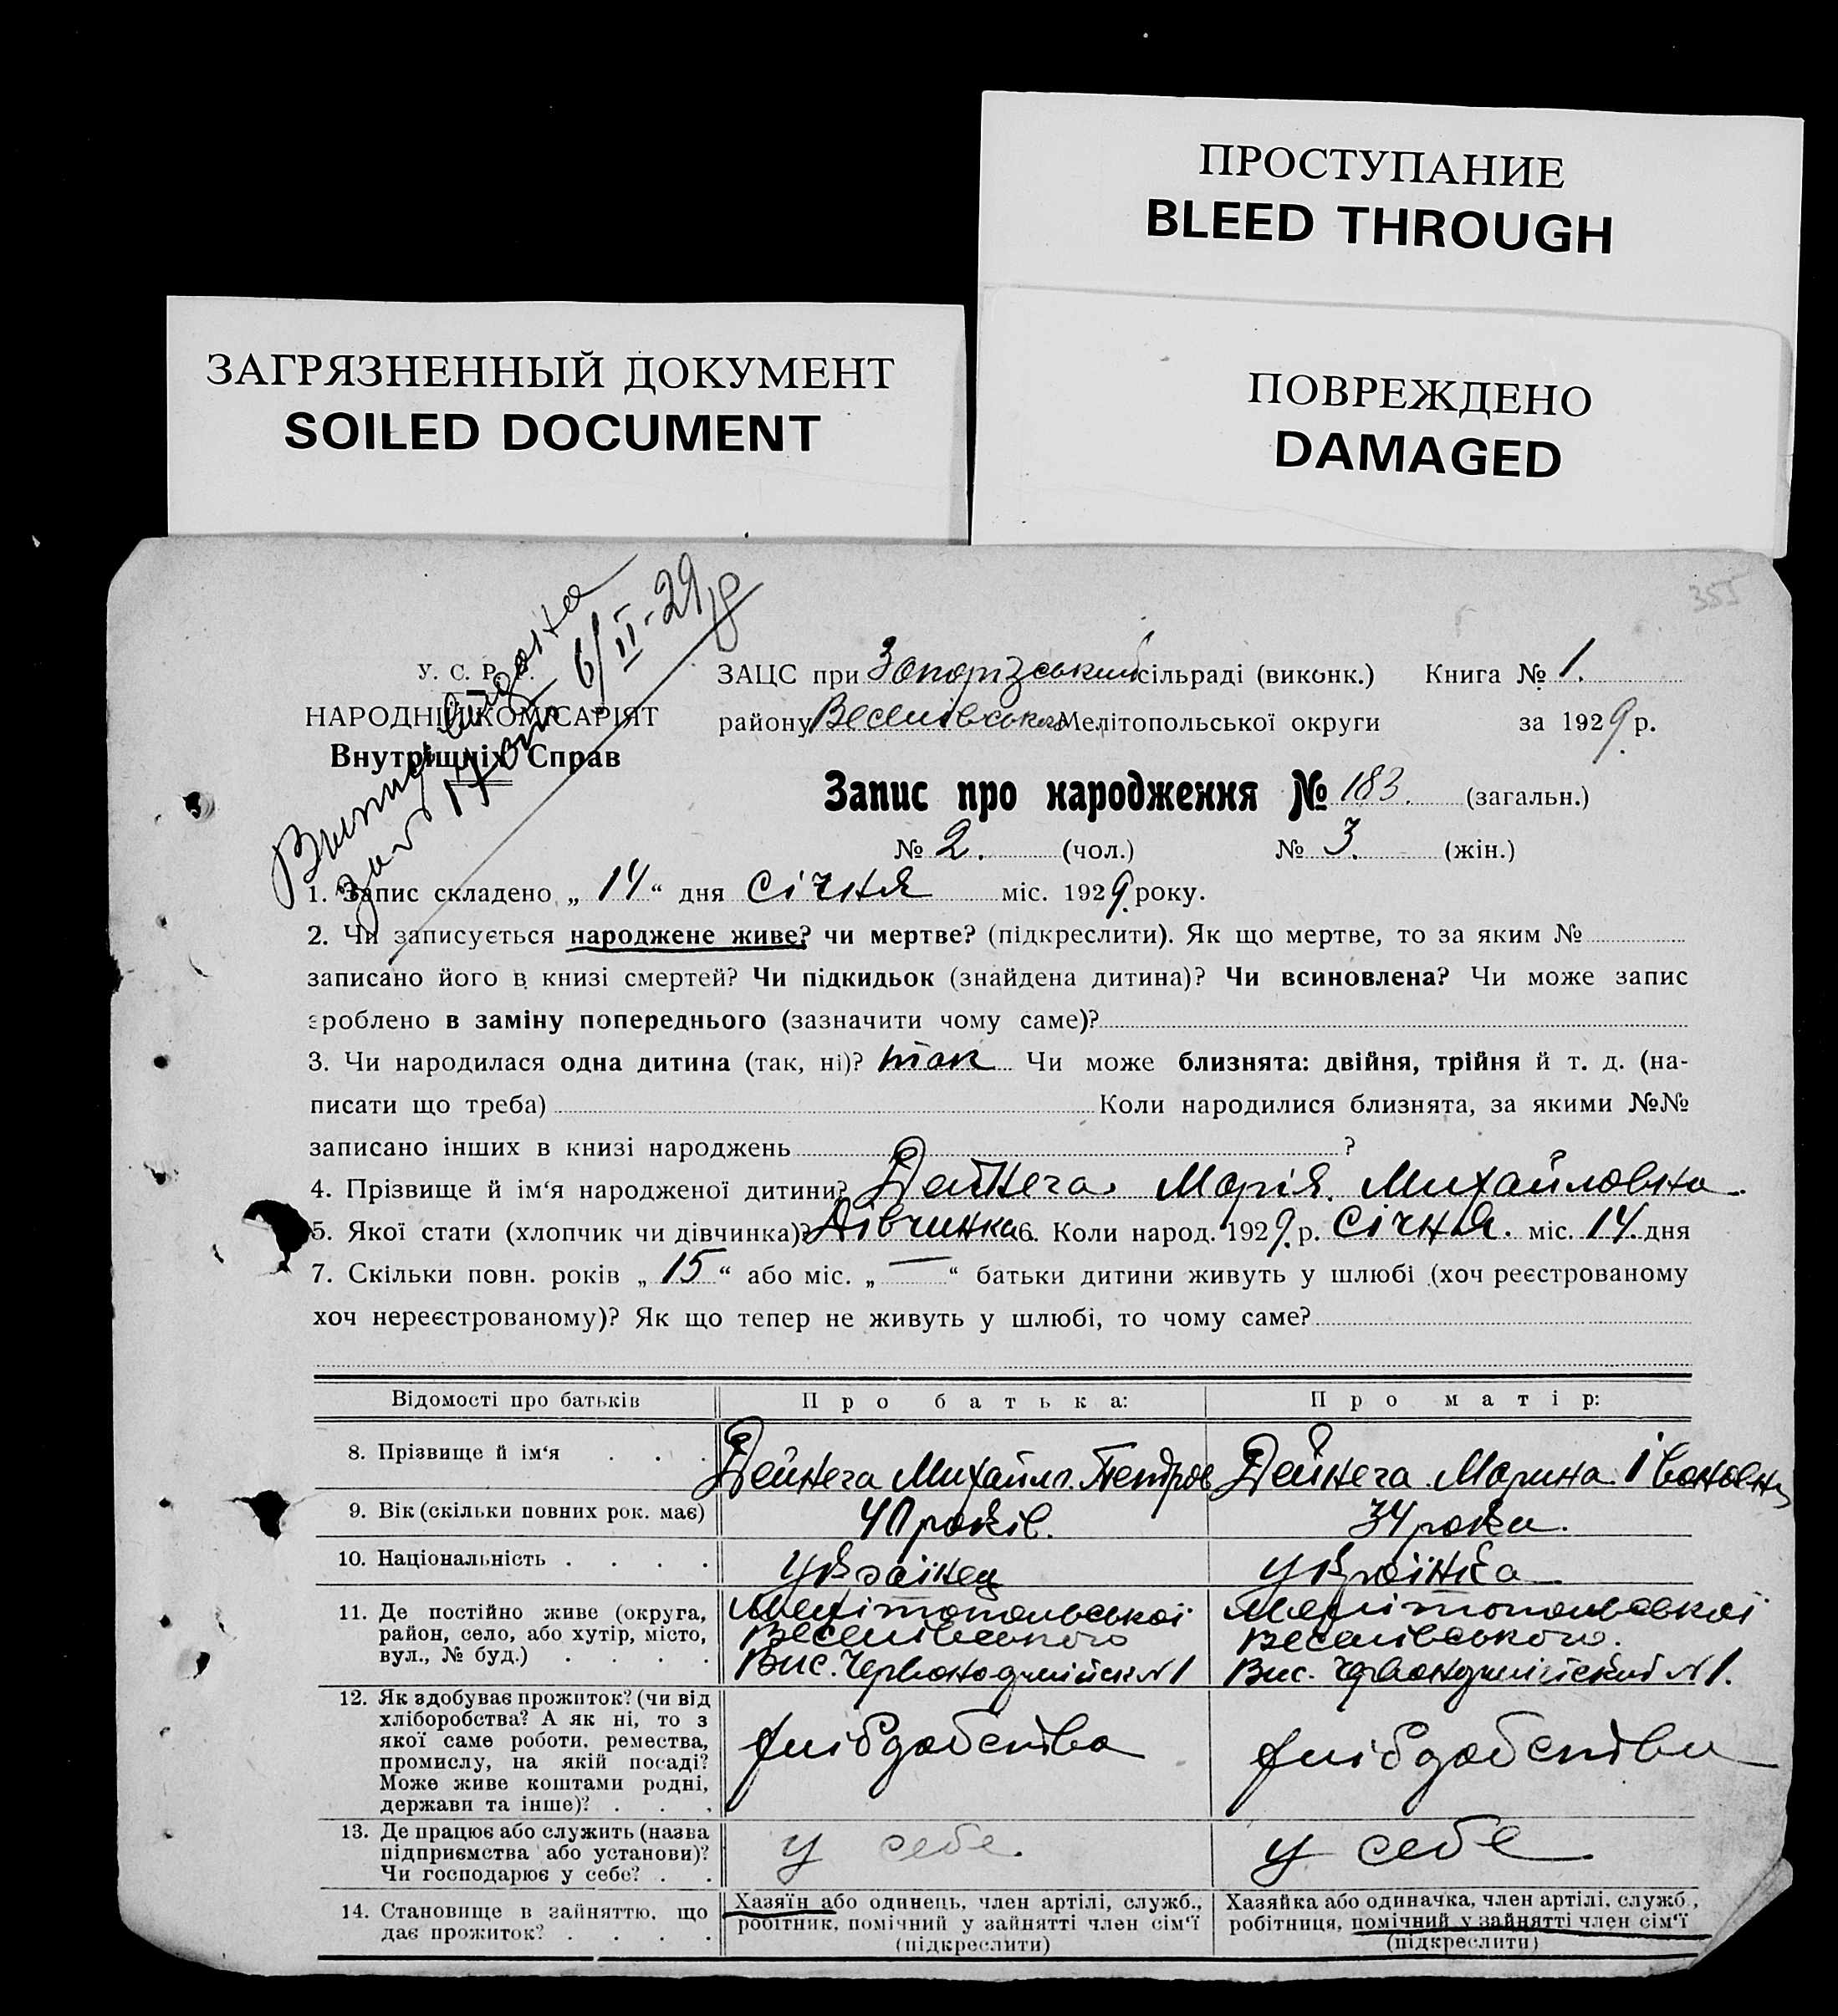 ПРОСТУПАНИЕ
BLEED THROUGH
ЗАГРЯЗНЕННЫЙ ДОКУМЕНТ
SOILED DOCUMENT
ПОВРЕЖДЕНО
DAMAGED
355
6/II-29 р
У. С. Р. Р.
НАРОДНІЙ КОМІСАРІЯТ
Внутрішніх Справ
ЗАЦС при Запорізський сільраді (виконк.) Книга № 1.
району Веселівського Мелітопольської округи за 1929 р.
Запис про народження № 183. (загальн.)
№ 2. (чол.) № 3. (жін.)
1. Запис складено „ 14 “ дня Січня міс. 1929 року.
2. Чи записується народжене живе? чи мертве? (підкреслити). Як що мертве, то за яким №
записано його в книзі смертей? Чи підкидьок (знайдена дитина)? Чи всиновлена? Чи може запис
зроблено в заміну попереднього (зазначити чому саме)?
3. Чи народилася одна дитина (так, ні)? так Чи може близнята: двійня, трійня й т. д. (на-
писати що треба) Коли народилися близнята, за якими №№
записано інших в книзі народжень ?
4. Прізвище й ім‘я народженої дитини? Дейнега Марія Михайловна.
5. Якої стати (хлопчик чи дівчинка)? Дівчинка 6. Коли народ. 1929 р. Січня. міс. 14. дня
7. Скільки повн. років „ 15 “ або міс. „ — “ батьки дитини живуть у шлюбі (хоч реєстрованому
хоч нереєстрованому)? Як що тепер не живуть у шлюбі, то чому саме?
Відомості про батьків Про батька: Про матір:
8. Прізвище й ім‘я . . . Дейнега Михайло Петров Дейнега Марина Івановна
9. Вік (скільки повних рок. має) 40 років. 34 роки.
10. Національність . . . . Українец Українка
11. Де постійно живе (округа, район, село, або хутір, місто, вул., № буд.) . . . .
Мелітопольської Веселівського Вис. Червоноармійск N 1
Мелітопольської Веселівського. Вис. Червоноармійский N 1.
12. Як здобуває прожиток? (чи від хліборобства? А як ні, то з якої саме роботи, ремества, промислу, на якій посаді? Може живе коштами родні, держави та інше)? . . .
13. Де працює або служить (назва підприємства або установи)? Чи господарює у себе? . .
у себе. у себе
14. Становище в зайняттю, що дає прожиток? . . . .
Хазяїн або одинець, член артілі, служб., робітник, помічний у зайнятті член сім‘ї (підкреслити)
Хазяйка або одиначка, член артілі, служб., робітниця, помічний у зайнятті член сім‘ї (підкреслити)